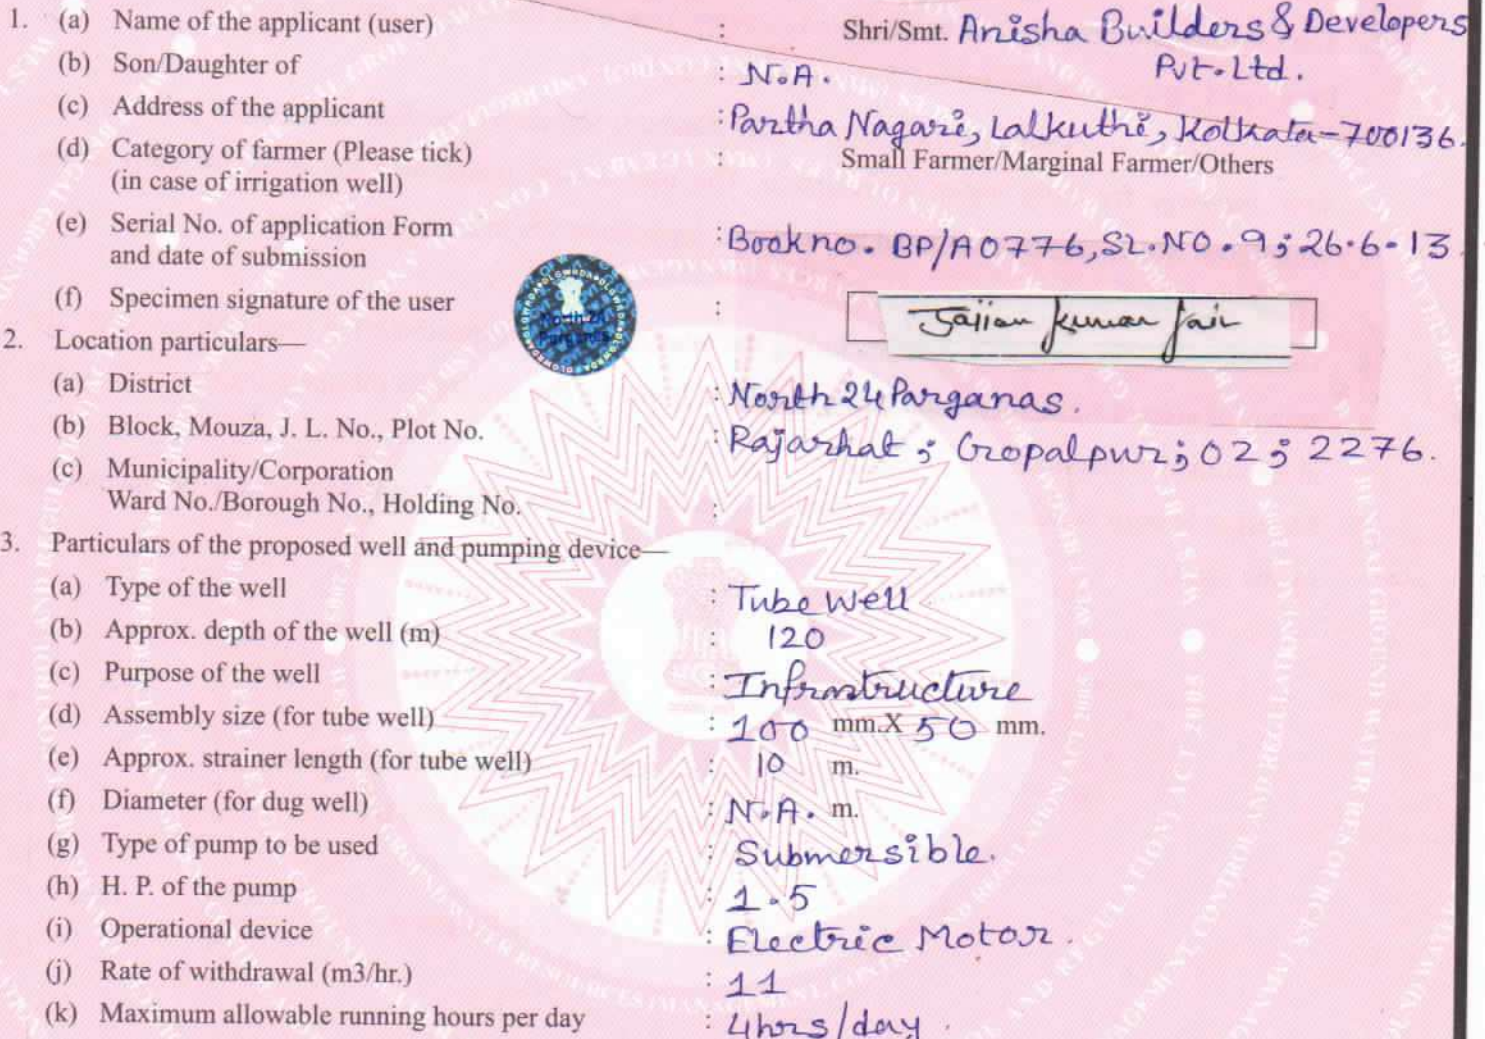 1. (a) Name of the applicant (user) : Shri/Smt. Anisha Builders & Developers
Pvt. Ltd.
(b) Son/Daughter of : N.A.
(c) Address of the applicant : Partha Nagari, Lalkuthi, Kolkata-700136.
(d) Category of farmer (Please tick) : Small Farmer/Marginal Farmer/Others
(in case of irrigation well)
(e) Serial No. of application Form : Book no. BP/A0776, SL.NO. 9; 26.6-13
and date of submission
(f) Specimen signature of the user : kumar Jain
2. Location particulars—
(a) District : North 24 Parganas.
(b) Block, Mouza, J. L. No., Plot No. : Rajarhat ; Gropalpur; 02; 2276.
(c) Municipality/Corporation
Ward No./Borough No., Holding No. :
3. Particulars of the proposed well and pumping device—
(a) Type of the well : Tube Well
(b) Approx. depth of the well (m) : 120
(c) Purpose of the well : Infrastructure
(d) Assembly size (for tube well) : 100 mm.X 50 mm.
(e) Approx. strainer length (for tube well) : 10 m.
(f) Diameter (for dug well) : N.A. m.
(g) Type of pump to be used : Submersible.
(h) H. P. of the pump : 1.5
(i) Operational device : Electric Motor.
(j) Rate of withdrawal (m3/hr.) : 11
(k) Maximum allowable running hours per day : 4hrs/day.